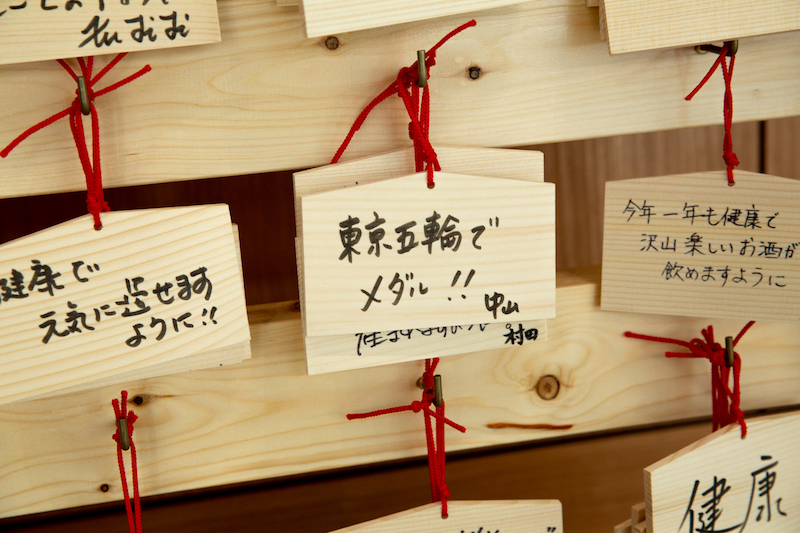 東京五輪で
メダル!!
中山
村田
健康で
元気に過せます
ように!!
今年一年も健康で
沢山楽しいお酒が
飲めますように
健康